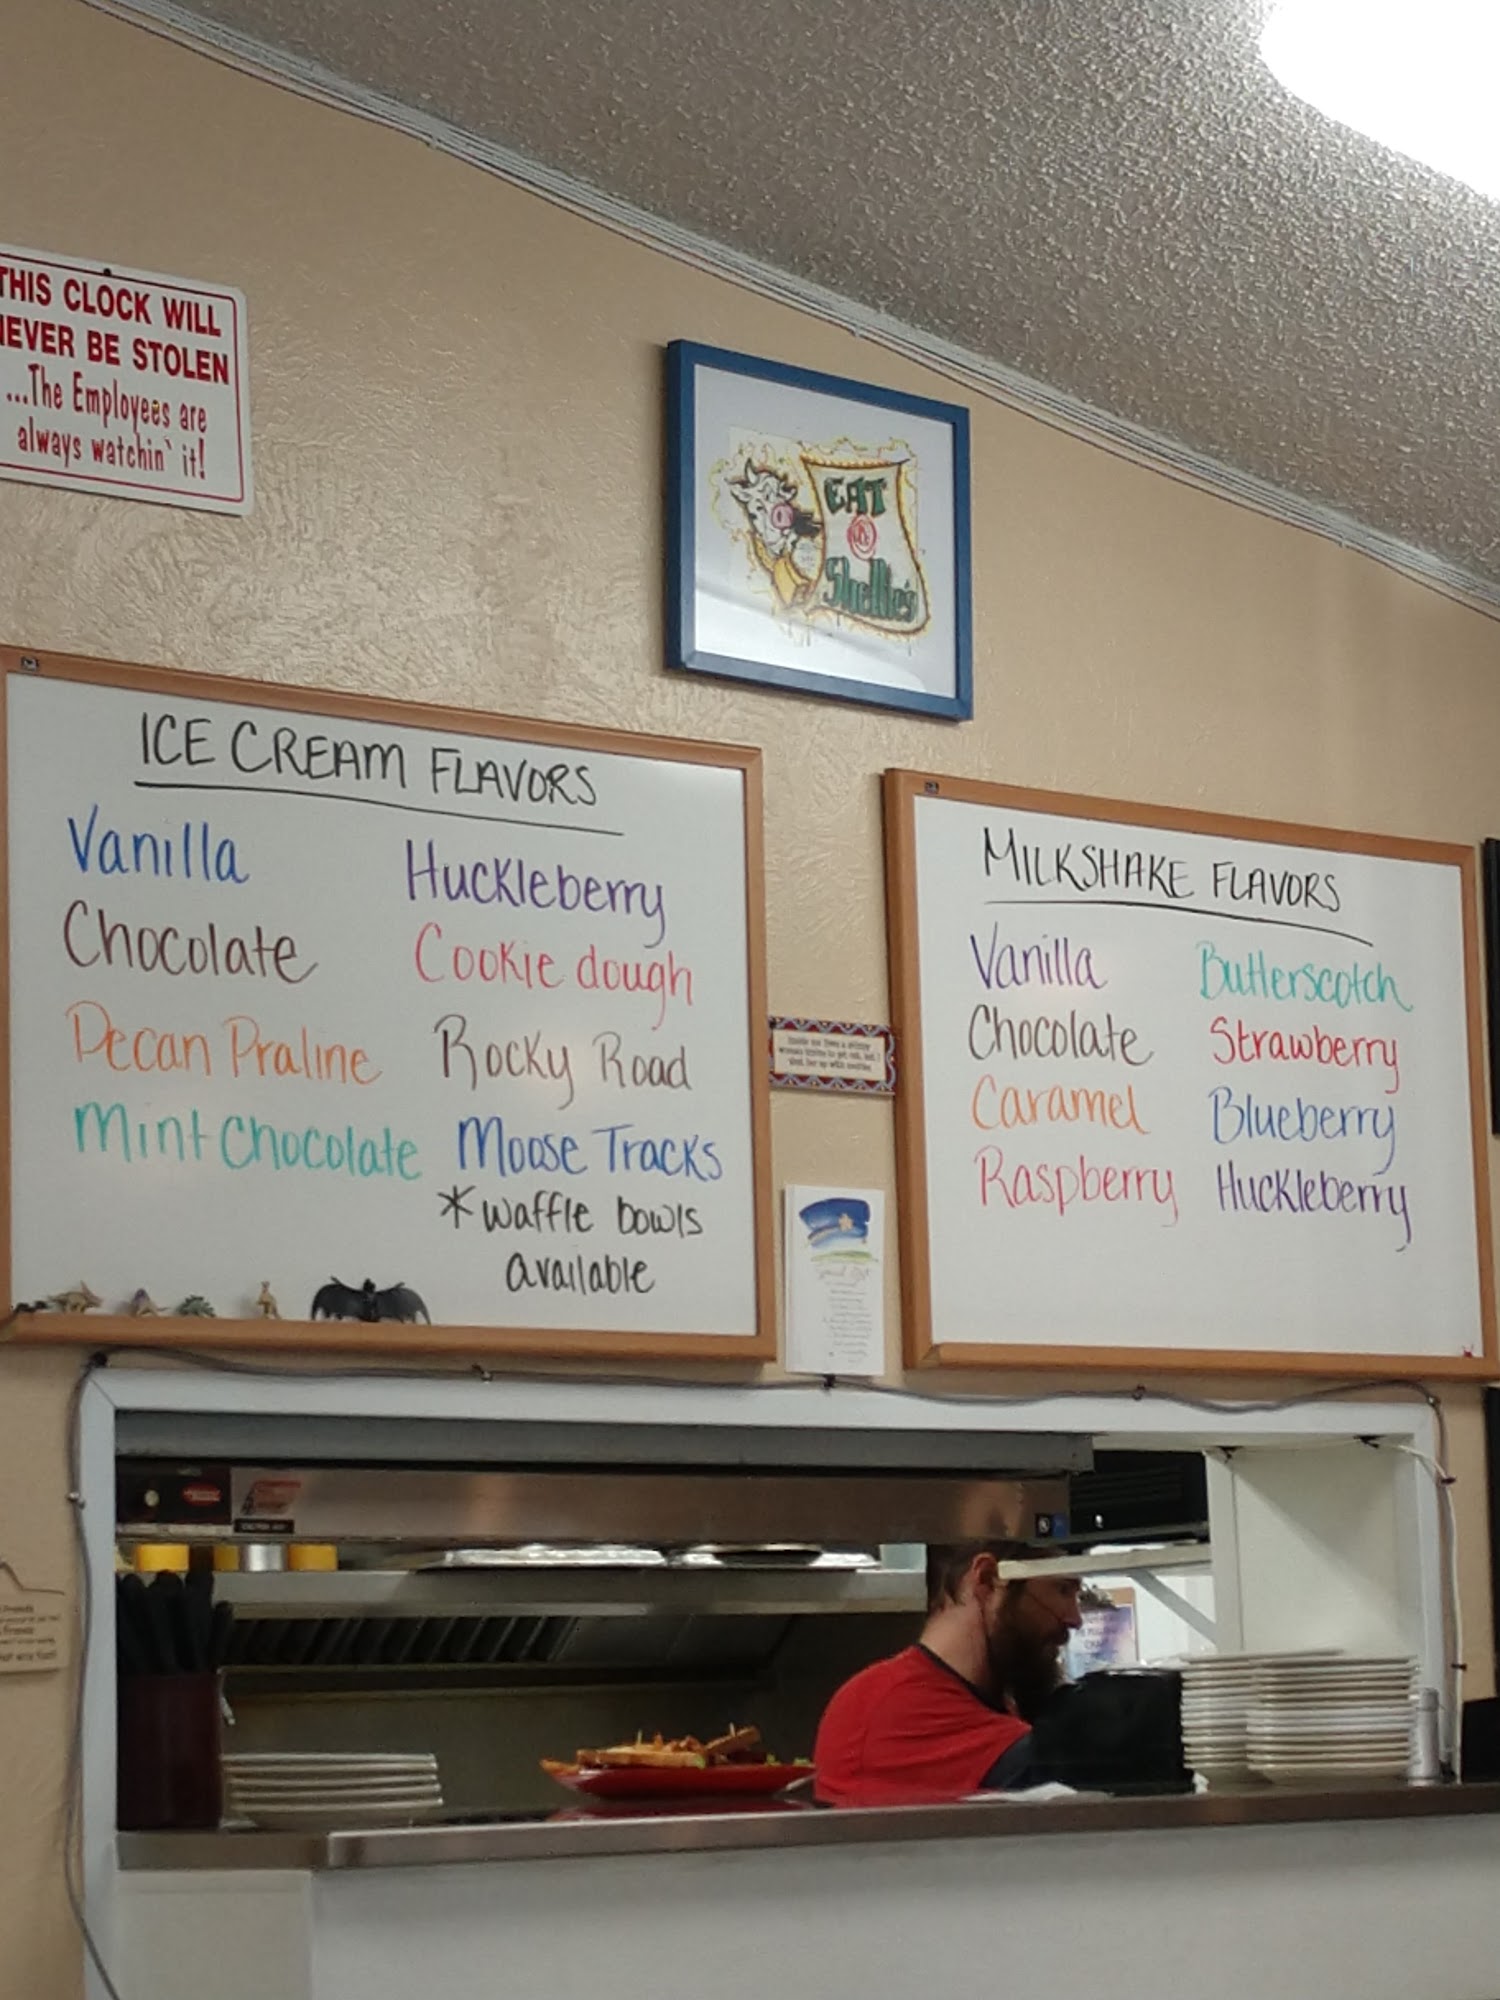 THIS CLOCK WILL
NEVER BE STOLEN
...The Employees are
always watchin' it!
EAT
Shellie's
ICE CREAM FLAVORS
Vanilla
Chocolate
Pecan Praline
Mint Chocolate
Huckleberry
Cookie dough
Rocky Road
Moose Tracks
*waffle bowls
available
MILKSHAKE FLAVORS
Vanilla
Chocolate
Caramel
Raspberry
Butterscotch
Strawberry
Blueberry
Huckleberry